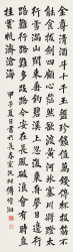 金尊清酒斗十千玉盤珍羞值萬錢停杯投箸
不能食拔劍四顧心茫然欲渡黃河冰塞川將
登太行雪滿山閒來垂釣碧溪上忽復乘舟夢日邊行
路難行路難多歧路今安在長風破浪會有時直
挂雲帆濟滄海
甲子夏日書於長春室沅叔傅增湘